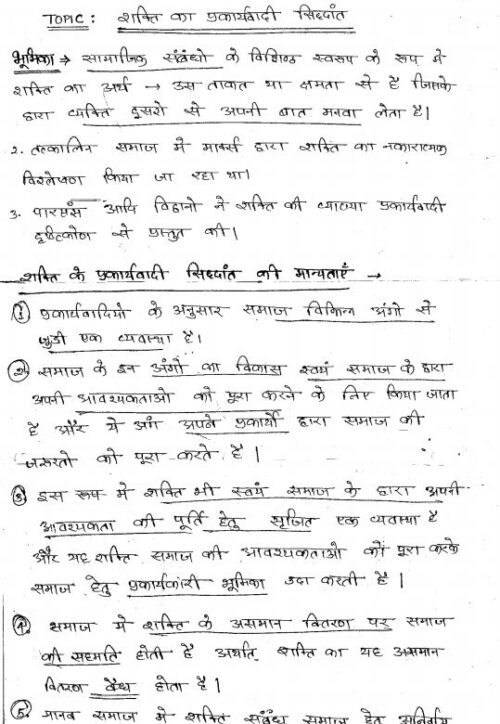 TOPIC : शक्ति का प्रकार्यवादी सिद्दांत
भूमिका → सामाजिक संबंधो के विशिष्ट स्वरूप के रूप मे
शक्ति का अर्थ → उस ताकत या क्षमता से है जिसके
द्वारा व्यक्ति दूसरो से अपनी बात मनवा लेता है।
2. तत्कालिन समाज मे मार्क्स द्वारा शक्ति का नकारात्मक
विश्लेषण किया जा रहा था।
3. पारसंस आदि विद्वानो ने शक्ति की व्याख्या प्रकार्यवादी
दृष्टिकोण से प्रस्तुत की।
शक्ति के प्रकार्यवादी सिद्दांत की मान्यताएँ →
① प्रकार्यवादियो के अनुसार समाज विभिन्न अंगो से
जुडी एक व्यवस्था है।
② समाज के इन अंगो का विकास स्वयं समाज के द्वारा
अपनी आवश्यकताओ को पूरा करने के लिए किया जाता
है और ये अंग अपने प्रकार्यो द्वारा समाज की
जरूरतो को पूरा करते है।
③ इस रूप मे शक्ति भी स्वयं समाज के द्वारा अपनी
आवश्यकता की पूर्ति हेतु सृजित एक व्यवस्था है
और यह शक्ति समाज की आवश्यकताओ को पूरा करके
समाज हेतु प्रकार्यकारी भूमिका अदा करती है।
④ समाज मे शक्ति के असमान वितरण पर समाज
की सहमति होती है अर्थात् शक्ति का यह असमान
वितरण वैध होता है।
⑤ मानव समाज मे शक्ति संबंध समाज हेतु अनिवार्य